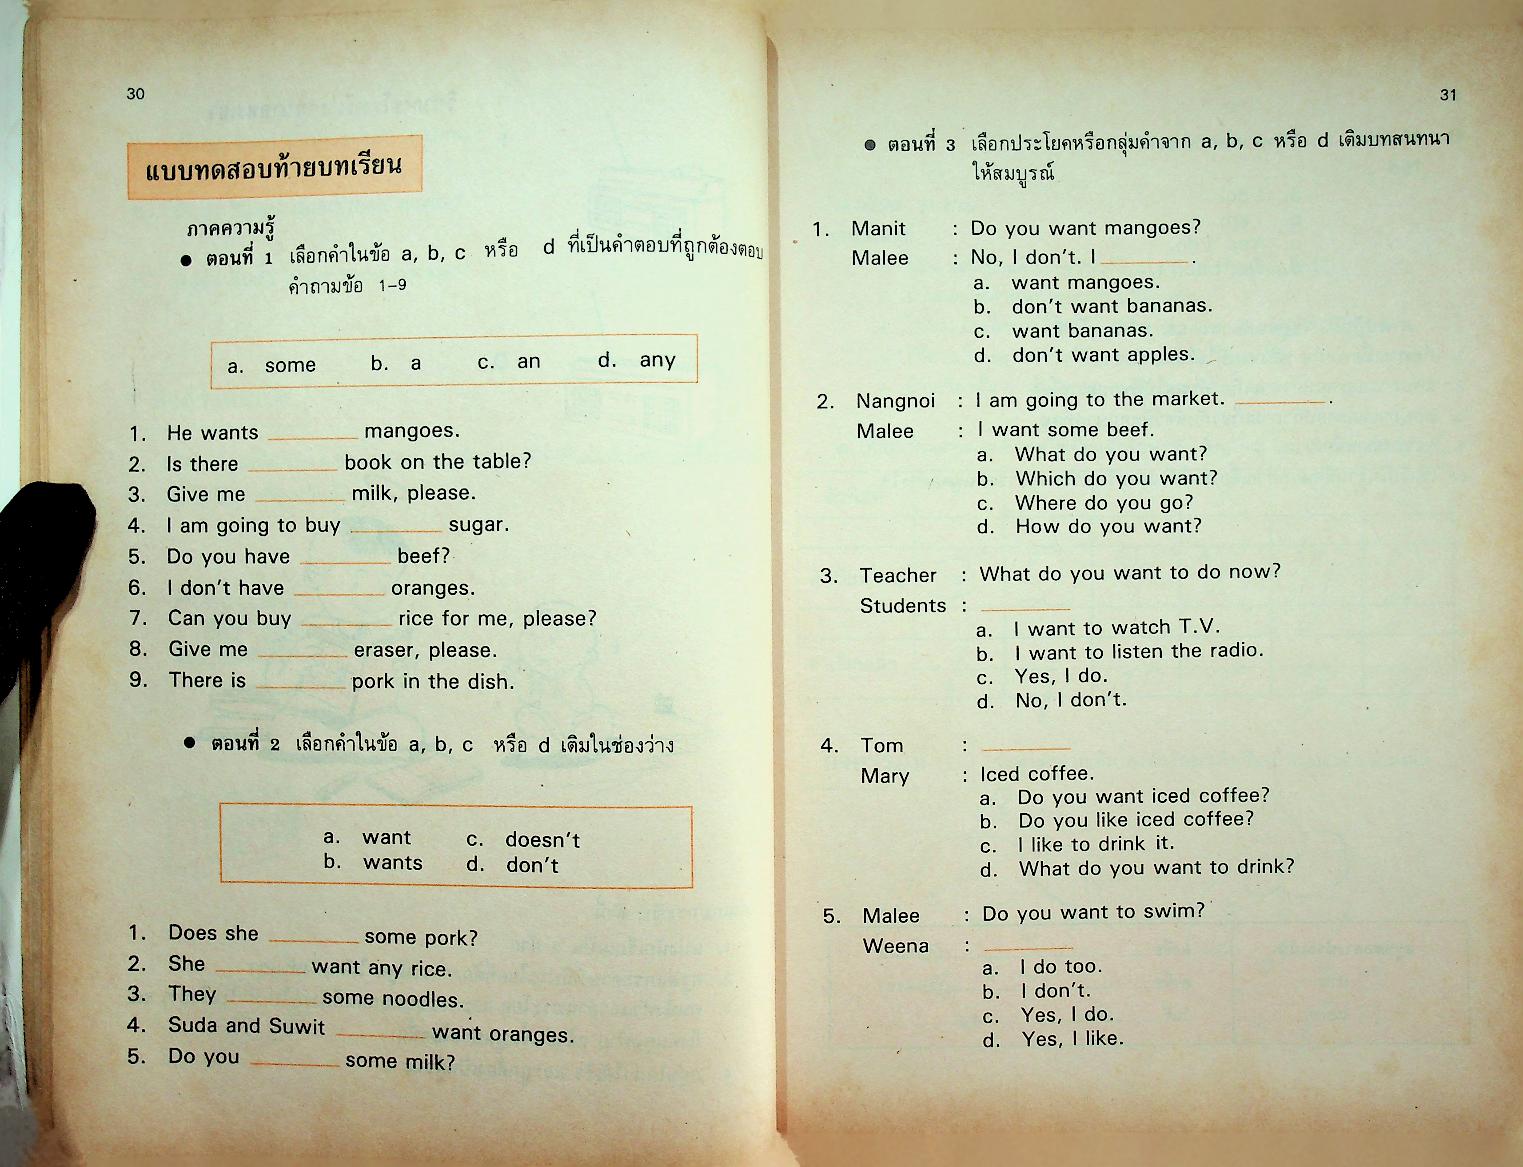 30
แบบทดสอบท้ายบทเรียน
ภาคความรู้
● ตอนที่ 1 เลือกคำในข้อ a, b, c หรือ d ที่เป็นคำตอบที่ถูกต้องตอบ
คำถามข้อ 1-9
a. some b. a c. an d. any
1. He wants ________ mangoes.
2. Is there ________ book on the table?
3. Give me ________ milk, please.
4. I am going to buy ________ sugar.
5. Do you have ________ beef?
6. I don't have ________ oranges.
7. Can you buy ________ rice for me, please?
8. Give me ________ eraser, please.
9. There is ________ pork in the dish.
● ตอนที่ 2 เลือกคำในข้อ a, b, c หรือ d เติมในช่องว่าง
a. want c. doesn't
b. wants d. don't
1. Does she ________ some pork?
2. She ________ want any rice.
3. They ________ some noodles.
4. Suda and Suwit ________ want oranges.
5. Do you ________ some milk?
31
● ตอนที่ 3 เลือกประโยคหรือกลุ่มคำจาก a, b, c หรือ d เติมบทสนทนา
ให้สมบูรณ์
1. Manit : Do you want mangoes?
Malee : No, I don't. I ________.
a. want mangoes.
b. don't want bananas.
c. want bananas.
d. don't want apples.
2. Nangnoi : I am going to the market. ________.
Malee : I want some beef.
a. What do you want?
b. Which do you want?
c. Where do you go?
d. How do you want?
3. Teacher : What do you want to do now?
Students : ________
a. I want to watch T.V.
b. I want to listen the radio.
c. Yes, I do.
d. No, I don't.
4. Tom : ________
Mary : Iced coffee.
a. Do you want iced coffee?
b. Do you like iced coffee?
c. I like to drink it.
d. What do you want to drink?
5. Malee : Do you want to swim?
Weena : ________
a. I do too.
b. I don't.
c. Yes, I do.
d. Yes, I like.